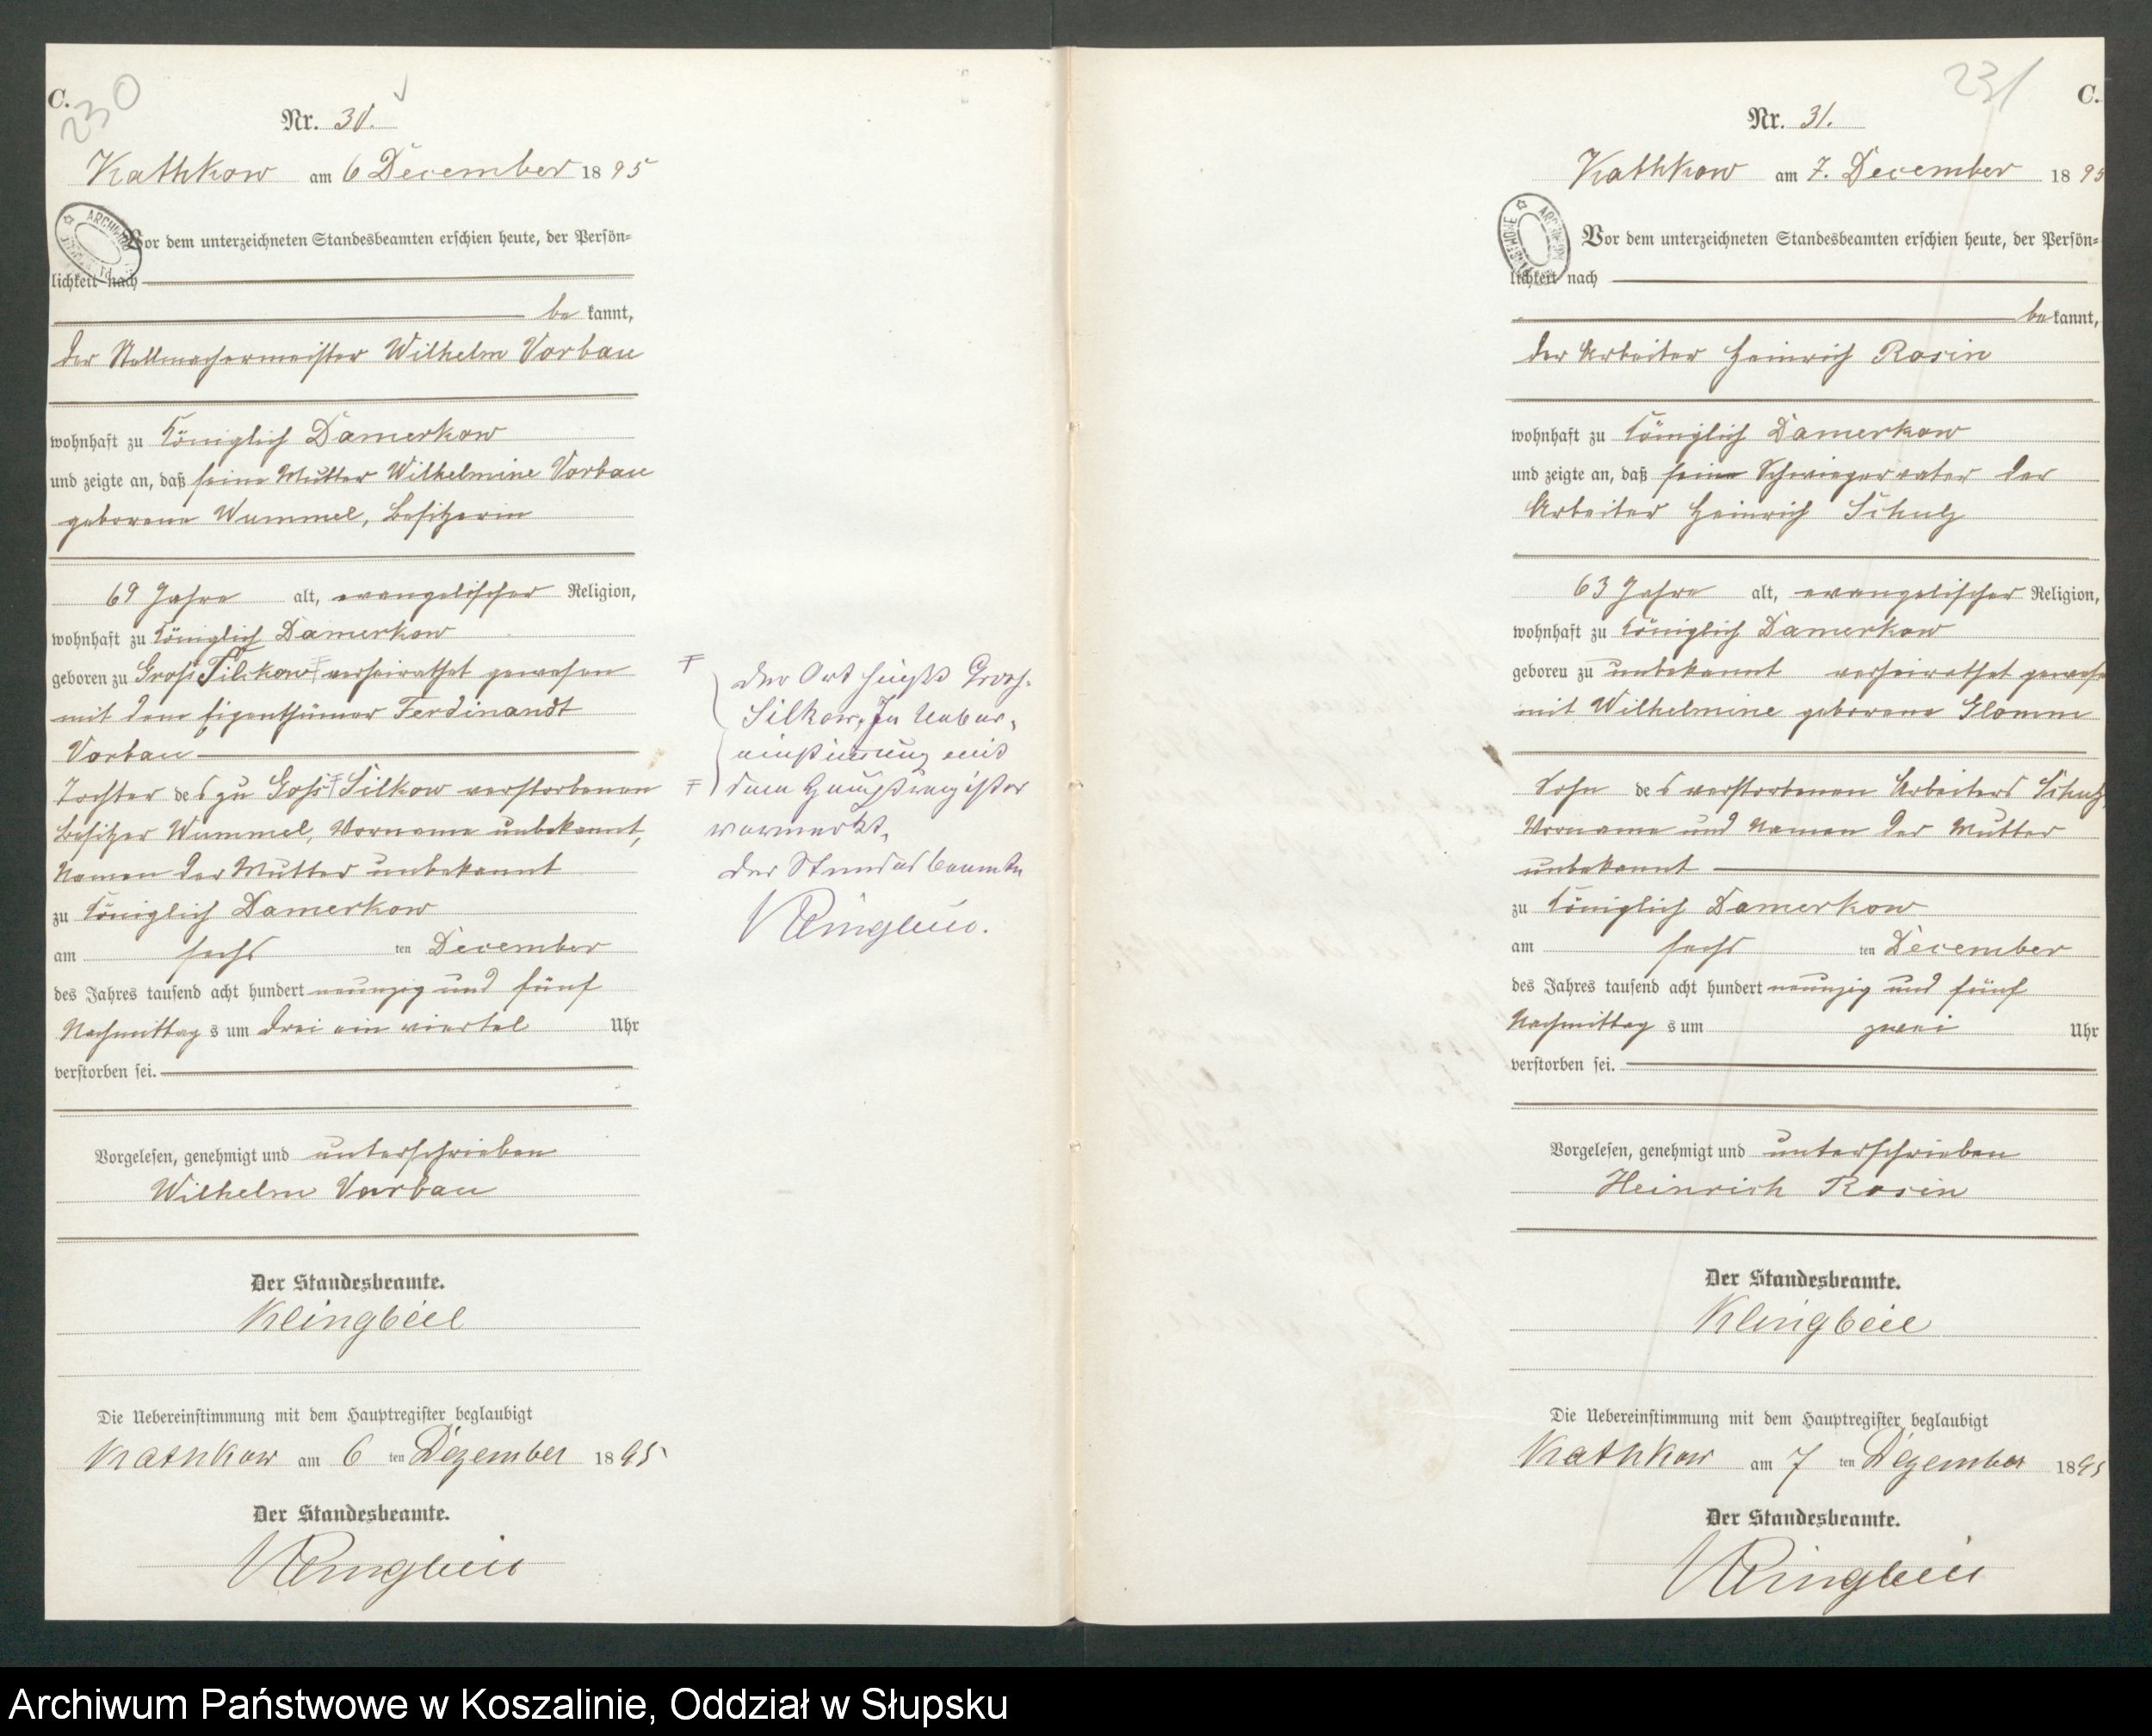 C.
230
Nr. 30.
Kathkow am 6 December 1895
Vor dem unterzeichneten Standesbeamten erschien heute, der Persön=
lichkeit nach
bekannt,
der Stellmachermeister Wilhelm Vorbau
wohnhaft zu Königlich Damerkow
und zeigte an, daß seine Mutter Wilhelmine Vorbau
geborene Wummel, Besitzerin
69 Jahre alt, evangelischer Religion,
wohnhaft zu Königlich Damerkow
geboren zu Groß Silkow verheirathet gewesen
mit dem Eigenthümer Ferdinandt
Vorbau
Tochter des zu Goß Silkow verstorbenen
Besitzer Wummel, Vorname unbekannt,
Namen der Mutter unbekannt
zu Königlich Damerkow
am sechsten December
des Jahres tausend acht hundert neunzig und fünf
Nachmittags um drei ein viertel Uhr
verstorben sei.
Vorgelesen, genehmigt und unterschrieben
Wilhelm Vorbau
Der Standesbeamte.
Klingbeil
Die Uebereinstimmung mit dem Hauptregister beglaubigt
Kathkow am 6ten Dezember 1895
Der Standesbeamte.
Klingbeil
Der Ort heißt Gross-
Silkow, In Ueber-
einstimmung mit
dem Hauptregister
vermerkt.
Der Standesbeamte
Klingbeil.
231
C.
Nr. 31.
Kathkow am 7. December 1895
Vor dem unterzeichneten Standesbeamten erschien heute, der Persön=
lichkeit nach
bekannt,
der Arbeiter Heinrich Rosin
wohnhaft zu Königlich Damerkow
und zeigte an, daß sein Schwiegervater der
Arbeiter Heinrich Schulz
63 Jahre alt, evangelischer Religion,
wohnhaft zu Königlich Damerkow
geboren zu unbekannt verheirathet gewesen
mit Wilhelmine geborene Glamm
Sohn des verstorbenen Arbeiters Schulz,
Vorname und Namen der Mutter
unbekannt
zu Königlich Damerkow
am sechsten December
des Jahres tausend acht hundert neunzig und fünf
Nachmittags um zwei Uhr
verstorben sei.
Vorgelesen, genehmigt und unterschrieben
Heinrich Rosin
Der Standesbeamte.
Klingbeil
Die Uebereinstimmung mit dem Hauptregister beglaubigt
Kathkow am 7ten Dezember 1895
Der Standesbeamte.
Klingbeil
Archiwum Państwowe w Koszalinie, Oddział w Słupsku